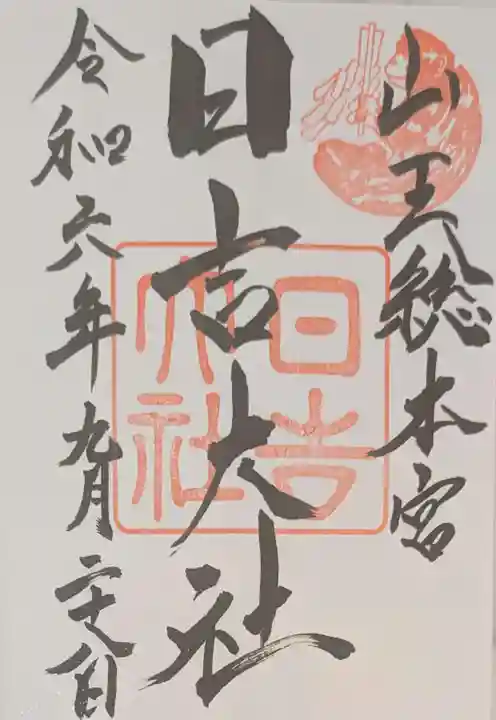 山王総本宮
日吉大社
日吉大社
令和六年九月二十八日